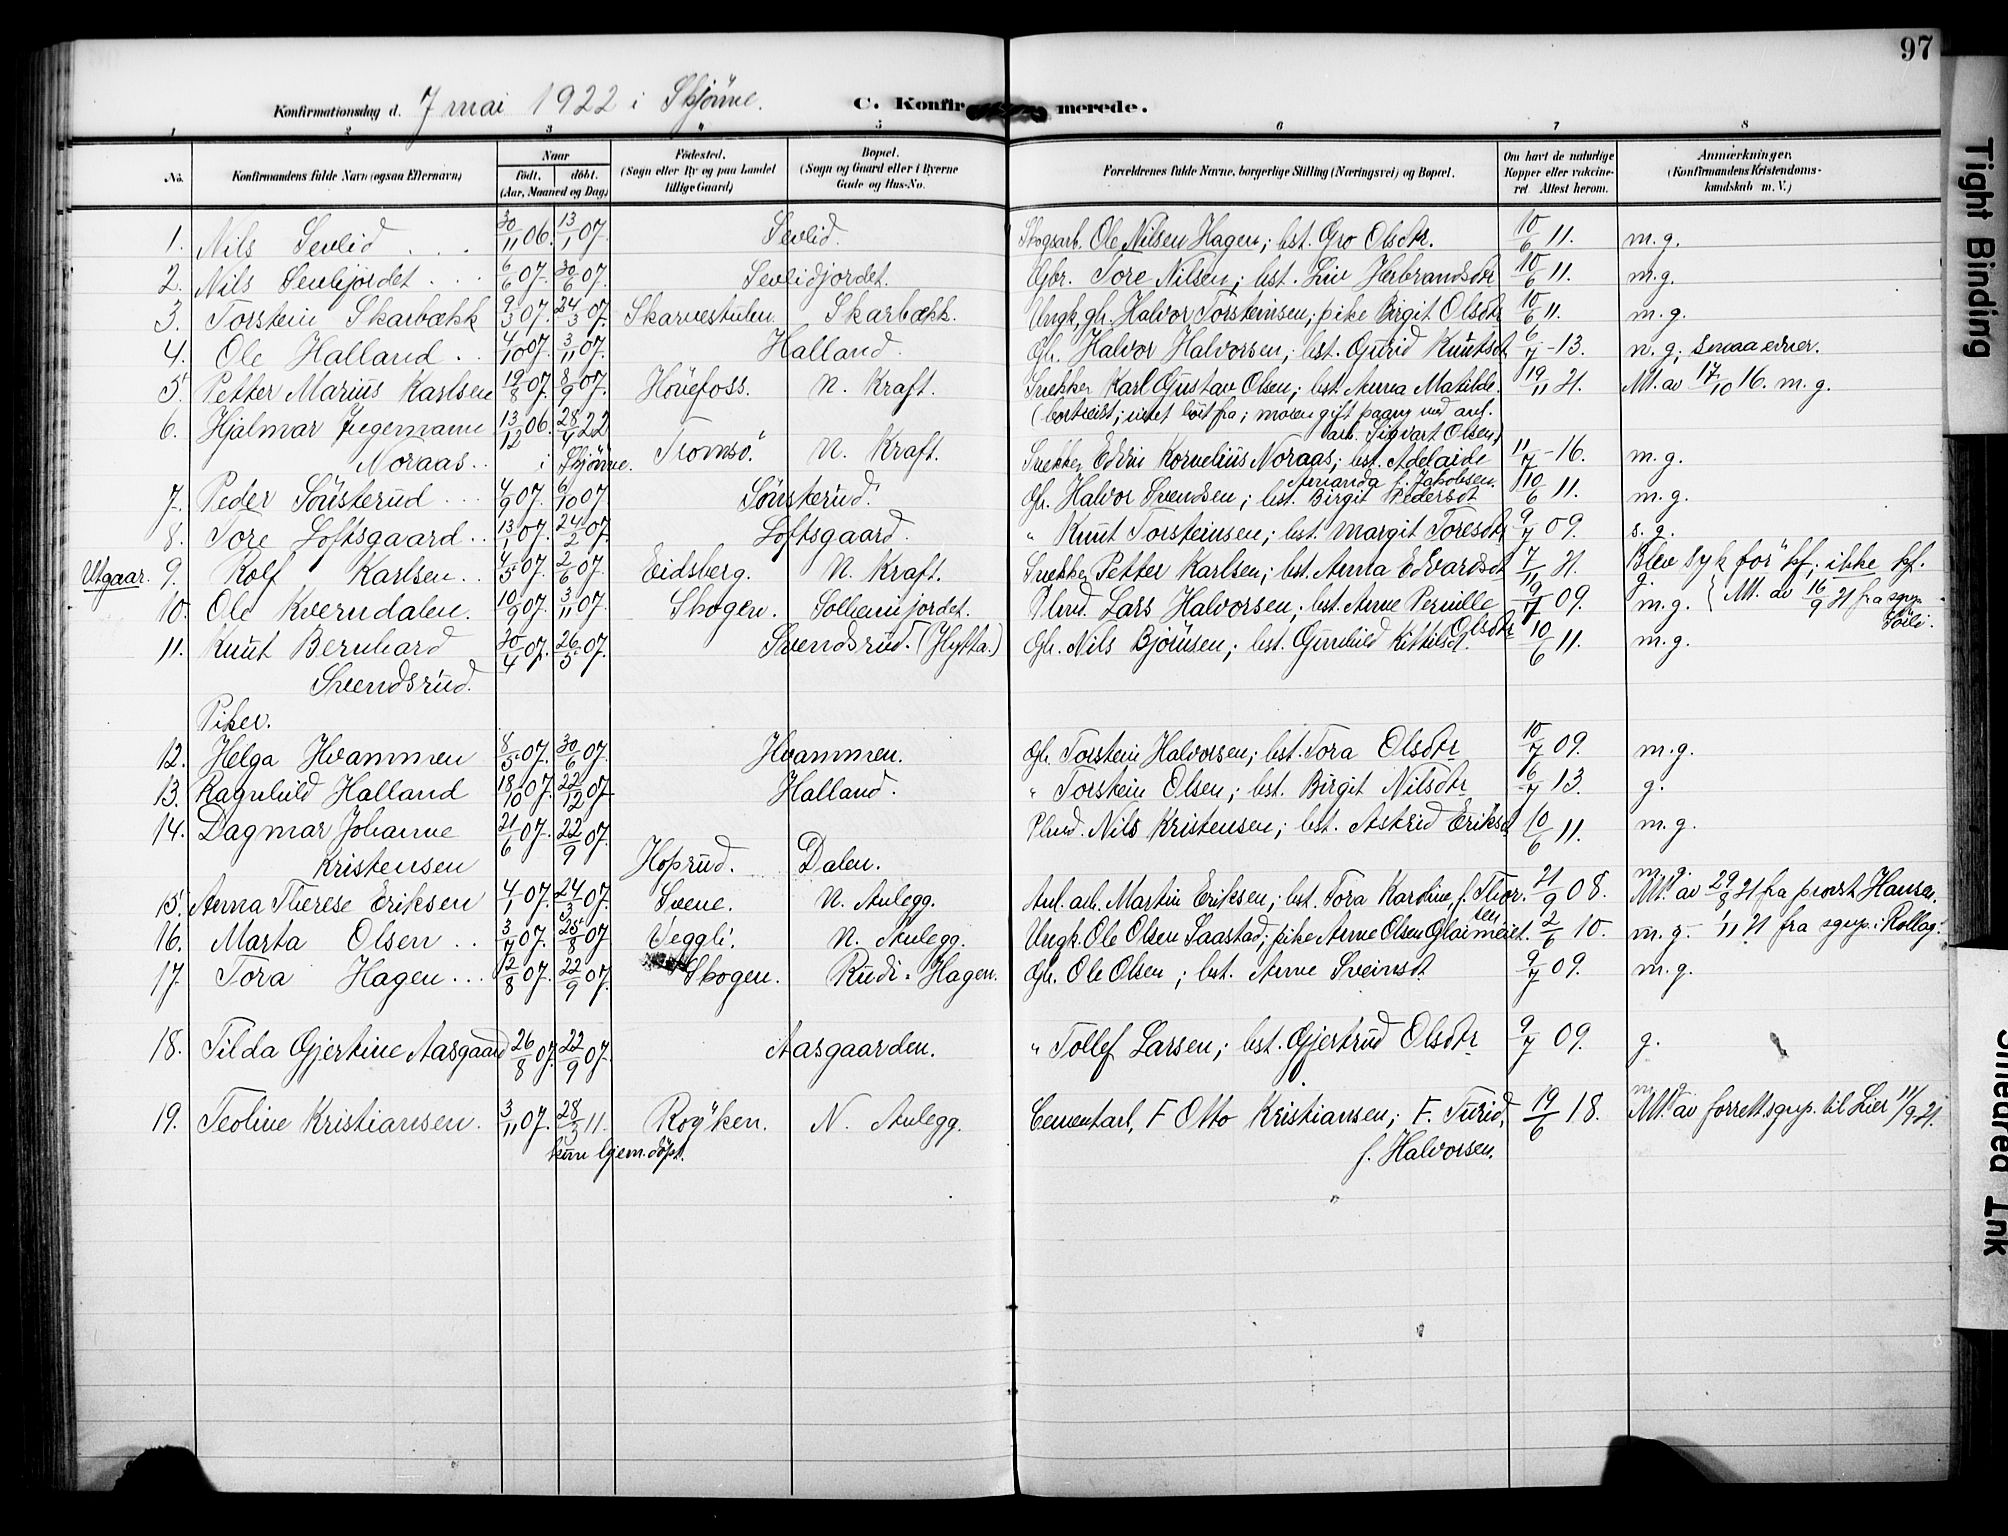 97
Konfirmationsdag d. 7 mai 1922 i Skjønne. C. Konfirmerede.
1 2 3 4 5 6 7 8
No. Konfirmandens fulde Navn (ogsaa Efternavn) Naar født. døbt. (Aar, Maaned og Dag) Fødested. (Sogn eller By og paa Landet tillige Gaard) Bopæl. (Sogn og Gaard eller i Byerne Gade og Hus-No. Forældrenes fulde Navne, borgerlige Stilling (Næringsvei) og Bopæl. Om havt de naturlige Kopper eller vaccineret Attest herom. Anmærkninger. (Konfirmandens Kristendomskundskab m. V.)
1. Nils Sevlid . . . 30/11 06. 13/1 07. Sevlid. Skogsarb. Ole Nilsen Hagen; hst. Gro Olsdtr. 10/6 11. m.g.
2. Nils Sevlijordet . . . 6/6 07. 30/6 07. Sevlidjordet. Gbr. Tore Nilsen; hst. Liv Herbrandsdtr 10/6 11. m.g.
3. Torstein Skarbækk 9/3 07. 24/3 07. Skarvestulen. Skarbækk. Ungk., gh. Halvor Torsteinsen; pike Birgit Olsdtr 10/6 11. m.g.
4. Ole Halland . . 4/10 07. 3/11 07. Halland. Gh. Halvor Halvorsen; hst. Gurid Knutsdt 6/7 - 13. n.g; smaa evner.
5. Petter Marius Karlsen 19/8 07. 8/9 07. Hönefoss. N. Kraft. Snekker Karl Gustav Olsen; hst. Anna Matilde. 19/11 21. Att. av 17/10 16. m.g.
(bortreist; intet hört fra; moren gift paany med anl.
arb. Sigvart Olsen)
6. Hjalmar Ingemann 13/12 06. 28/4 22
Noraas.. i Skjönne. Tromsö. N. Kraft. Snekker Edvin Kornelius Noraas; hst. Adelaide 11/7 - 16. m.g.
Amanda f. Jakobsen.
7. Peder Sönsterud . . . 4/9 07. 6/10 07. Sönsterud. Gh. Halvor Svendsen; hst. Birgit Pedersdt 10/6 11. m.g.
8. Tore Loftsgaard . . 13/1 07. 24/2 07. Loftsgaard. " Knut Torsteinsen; hst. Margit Toresdtr 9/7 09. s.g.
Utgaar. 9. Rolf Karlsen . . 4/5 07. 2/6 07. Eidsberg. N. Kraft. Snekker Petter Karlsen; hst. Anna Edvardsdt 7/11 21. Blev syk før kf; ikke kf.
10. Ole Kverndalen. 10/9 07. 3/11 07. Skogen. Solheimjordet. Plmd. Lars Halvorsen; hst. Anne Pernille 9/7 09. m.g. Att. av 16/9 21 fra sgnp.
Olsdtr
11. Knut Bernhard 30/4 07. 26/5 07. Svendsrud. (Hytta.) Gh. Nils Björnsen; hst. Gunhild Kittilsdt. 10/6 11. m.g.
Svendsrud.
Piker.
12. Helga Hvammen 8/5 07. 30/6 07. Hvammen. Gh. Torstein Halvorsen; hst. Tora Olsdtr 10/7 09. m.g.
13. Ragnhild Halland 18/10 07. 22/12 07. Halland. " Torstein Olsen; hst. Birgit Nilsdtr 6/7 13. g.
14. Dagmar Johanne 21/6 07. 22/9 07. Plmd. Nils Kristensen; hst. Astrid Eriksd 10/6 11. m.g.
Kristensen Hoprud. Dalen.
15. Anna Therese Eriksen 4/1 07. 24/3 07. Svene. N. Anlegg. Anl. arb. Martin Eriksen; hst. Tora Karoline, f. Thor. 21/9 08. m.g. Att. av 29/8 21 fra provst Hansen.
16. Marta Olsen . . 3/7 07. 25/8 07 Veggli. N. Anlegg. Ungk. Ole Olsen Saastad; pike Anne Olsen Gloimeiet. 2/6 10. m.g. 1/11 21 fra sgnp. i Rollag.
17. Tora Hagen . . . 12/8 07. 22/9 07. Skogen. Rudi-Hagen. Gh. Ole Olsen; hst. Anne Sveinsdt 9/7 09. m.g.
18. Tilda Gjertine Aasgaard 26/8 07. 22/9 07. Aasgaarden. " Tollef Larsen; hst. Gjertrud Olsdtr 9/7 09. g.
19. Teoline Kristiansen. 3/11 07. 28/3 11. Röyken. N. Anlegg. Cementarb. F Otto Kristiansen; F. Turid, 19/6 18. m.g. Att. av forrettsgnp. til Lier 11/9 21.
kun hjem.døpt. f. Halvorsen.
Tight Binding
Smeared Ink